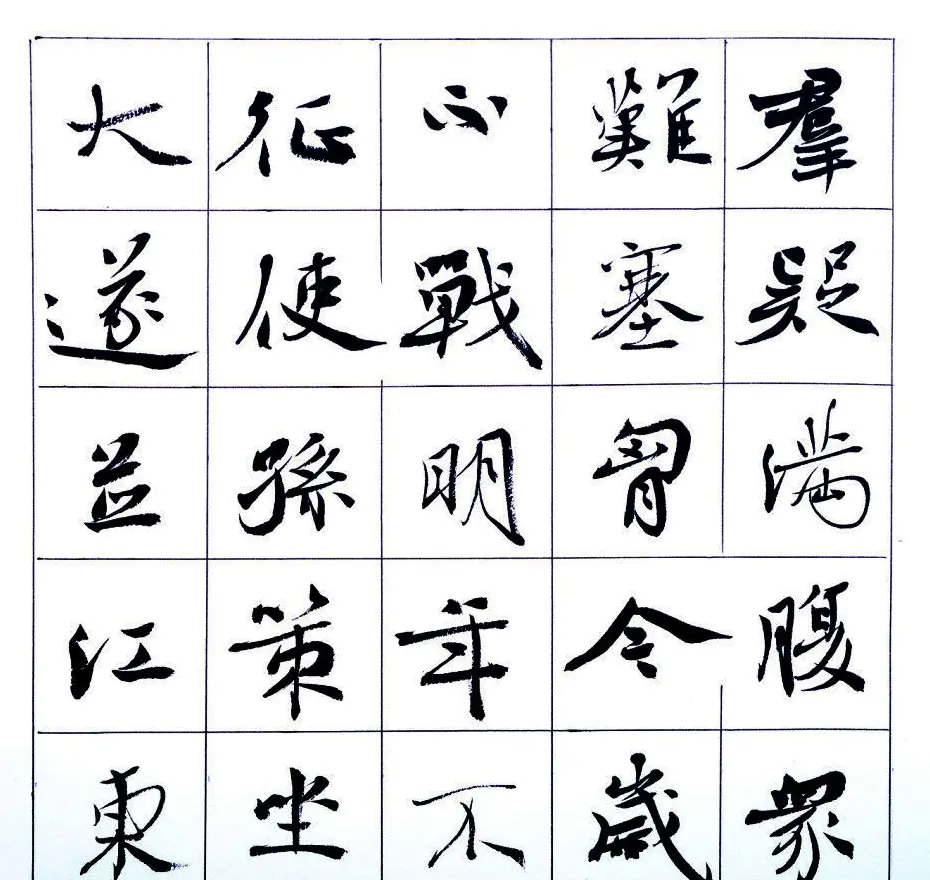 羣疑滿腹衆
難塞胷今歲
不戰明年不
征使孫策坐
大遂並江東